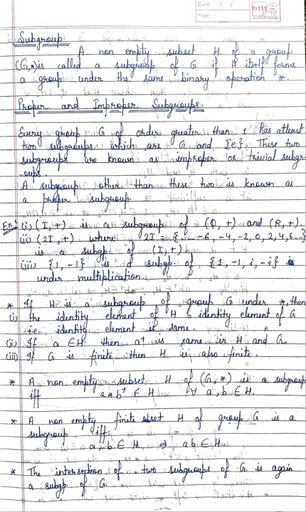 Date
Page
Subgroup
A non empty subset H of a group
(G,*) is called a subgroup of G if H itself forms
a group under the same binary operation *.
Proper and Improper Subgroups.
Every group G of order greater than 1 has atleast
two subgroups which are G and {e}. These two
subgroups are known as improper or trivial subgr-
oups.
A subgroup other than these two is known as
a proper subgroup
Ex: (i) (I,+) is a subgroup of (Q,+) and (R,+).
(ii) (2I,+) where 2I = {... -6, -4, -2, 0, 2, 4, 6..}
is a subgp of (I,+).
(iii) {1,-1} is a subgp of {1,-1,i,-i}
under multiplication.
* If H is a subgroup of group G under *, then
(i) the identity element of H = identity element of G
i.e. identity element is same.
(ii) If a ∈ H then a⁻¹ is same in H and G.
(iii) If G is finite then H is also finite.
* A non empty subset H of (G,*) is a subgroup
iff a*b⁻¹ ∈ H ∀ a, b ∈ H.
* A non empty finite subset H of group G is a
subgroup iff
a, b ∈ H ⇒ ab ∈ H.
* The intersection of two subgroups of G is again
a subgp of G.